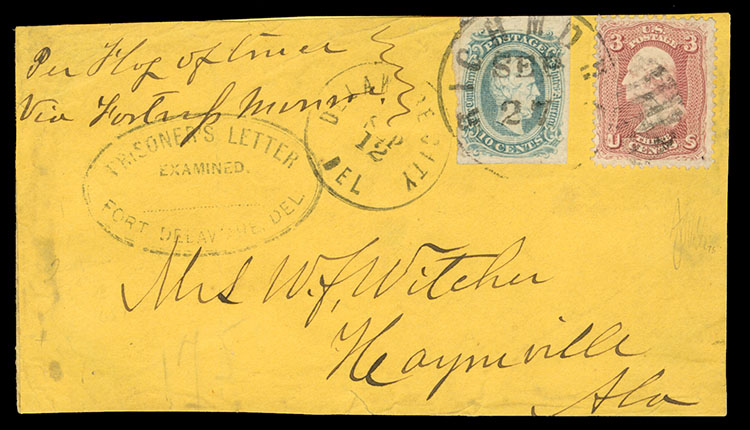 Per Flag of truce
Via Fortress Monroe.
PRISONER'S LETTER
EXAMINED.
FORT DELAWARE. DEL.
DELAWARE CITY
SEP
12
DEL
POSTAGE
10 CENTS
RICHMOND
SEP
27
3 U.S. 3
POSTAGE
THREE
U CENTS S
Mrs W.F. Witcher
Hayneville
Ala
175